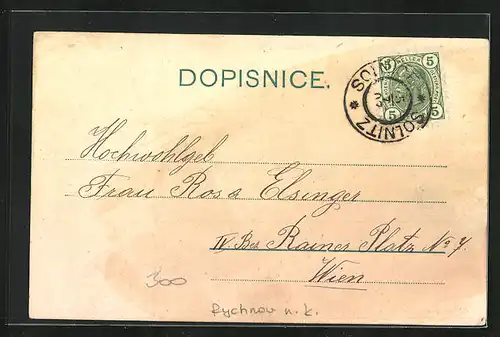 DOPISNICE.
5 5
5 5
* SOLNITZ *
Hochwohlgeb
Frau Rosa Elsinger
IV. Bez Rainer Platz No 7
Wien
300
Rychnov n. k.